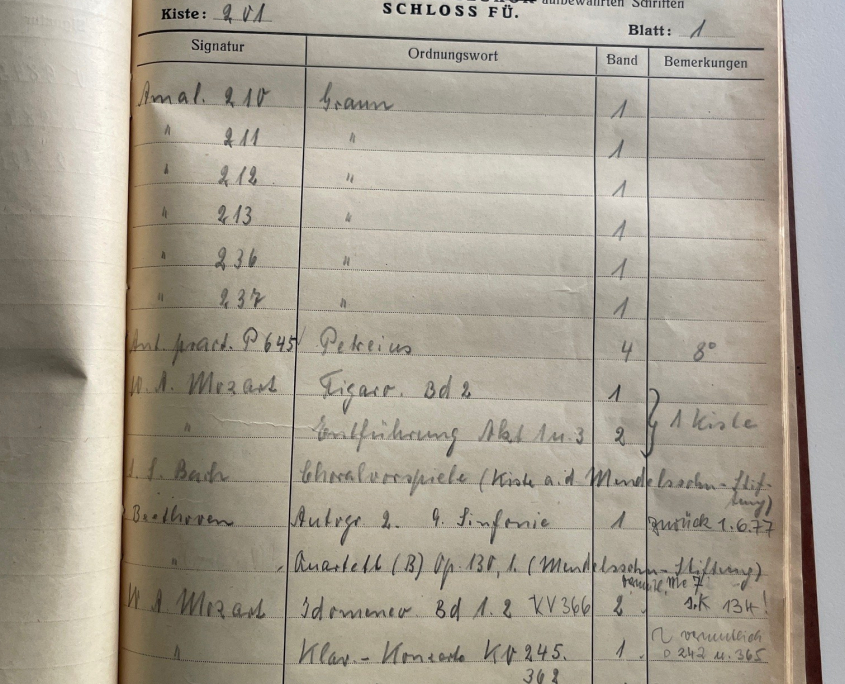 aufbewahrten Schriften
Kiste: 201 SCHLOSS FÜ.
Blatt: 1
Signatur Ordnungswort Band Bemerkungen
Amal. 210 Graun 1
" 211 " 1
" 212 " 1
" 213 " 1
" 236 " 1
" 237 " 1
Ant. pract. P 645 Petreius 4 8°
W. A. Mozart Figaro. Bd 2 1
" Entführung Akt 1 u. 3 2 } 1 Kiste
J. S. Bach Choralvorspiele (Kiste a. d. Mendelssohn-Stif-
tung)
Beethoven Autogr 2. 9. Sinfonie 1 zurück 1.6.77
" Quartett (B) Op. 130, 1. (Mendelssohn-Stiftung)
W A Mozart Idomeneo Bd 1. 2 KV 366 2 s. K 134!
" Klav.-Konzerte KV 245. 1 vermutlich
362 242 u. 365